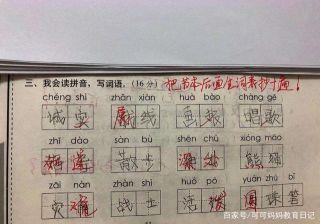 三、我会读拼音，写词语。(16分) 把书本后面生词表抄十遍！
chéng shí zhàn xiàn huà bào chàng gē
诚实 线 画报 唱歌
zhī dào sàn bù shēn chū xióng māo
散步 熊猫
zāi nàn zhàn shì huó pō yuán zhū bǐ
灾难 战士 活泼 圆珠笔
百家号/可可妈妈教育日记